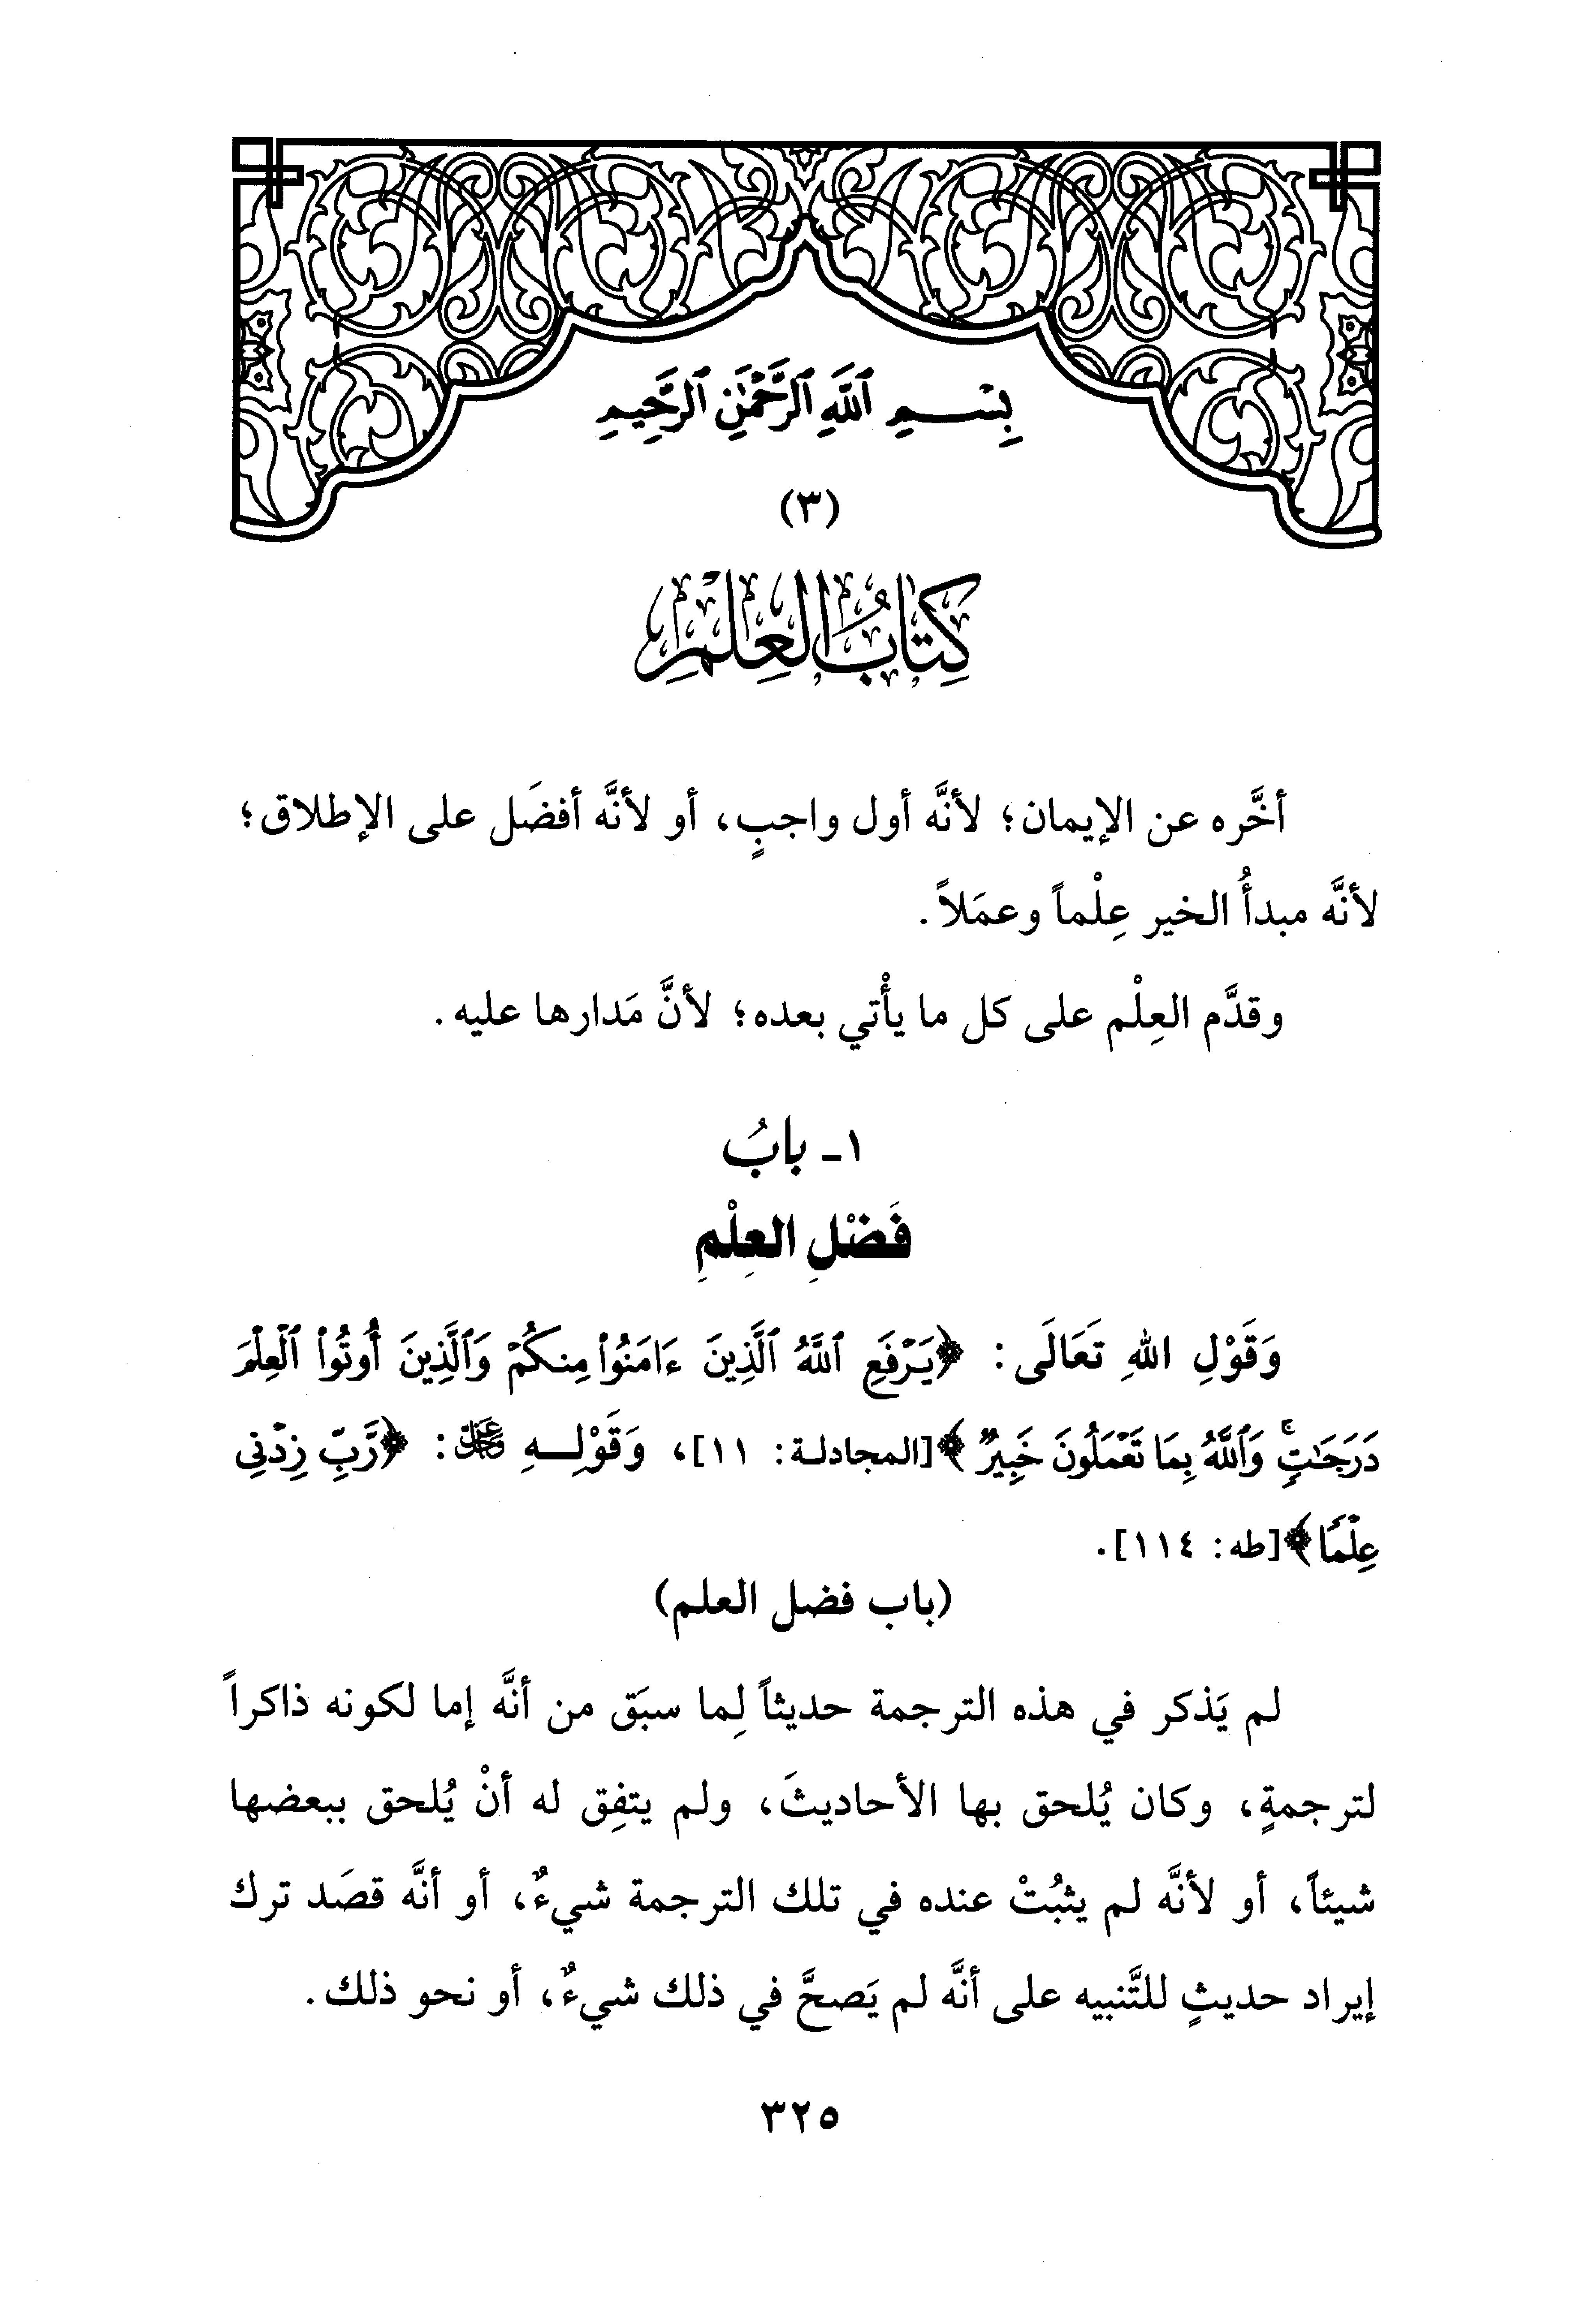 بِسْمِ ٱللَّهِ ٱلرَّحْمَٰنِ ٱلرَّحِيمِ
(٣)
كِتَابُ العِلْمِ
أخَّره عن الإيمان؛ لأنَّه أول واجبٍ، أو لأنَّه أفضَل على الإطلاق؛
لأنَّه مبدأُ الخير عِلْماً وعمَلاً.
وقدَّم العِلْم على كل ما يأْتي بعده؛ لأنَّ مَدارها عليه.
١ـ بابُ
فَضْلِ العِلْمِ
وَقَوْلِ اللهِ تَعَالَى: ﴿يَرْفَعِ ٱللَّهُ ٱلَّذِينَ ءَامَنُوا۟ مِنكُمْ وَٱلَّذِينَ أُوتُوا۟ ٱلْعِلْمَ
دَرَجَٰتٍۚ وَٱللَّهُ بِمَا تَعْمَلُونَ خَبِيرٌ﴾ [المجادلة: ١١]، وَقَوْلِـهِ ﷿: ﴿رَّبِّ زِدْنِى
عِلْمًا﴾ [طه: ١١٤].
(باب فضل العلم)
لم يَذكر في هذه الترجمة حديثاً لِما سبَق من أنَّه إما لكونه ذاكراً
لترجمةٍ، وكان يُلحق بها الأحاديثَ، ولم يتفِق له أنْ يُلحق ببعضها
شيئاً، أو لأنَّه لم يثبُتْ عنده في تلك الترجمة شيءٌ، أو أنَّه قصَد ترك
إيراد حديثٍ للتَّنبيه على أنَّه لم يَصحَّ في ذلك شيءٌ، أو نحو ذلك.
٣٢٥